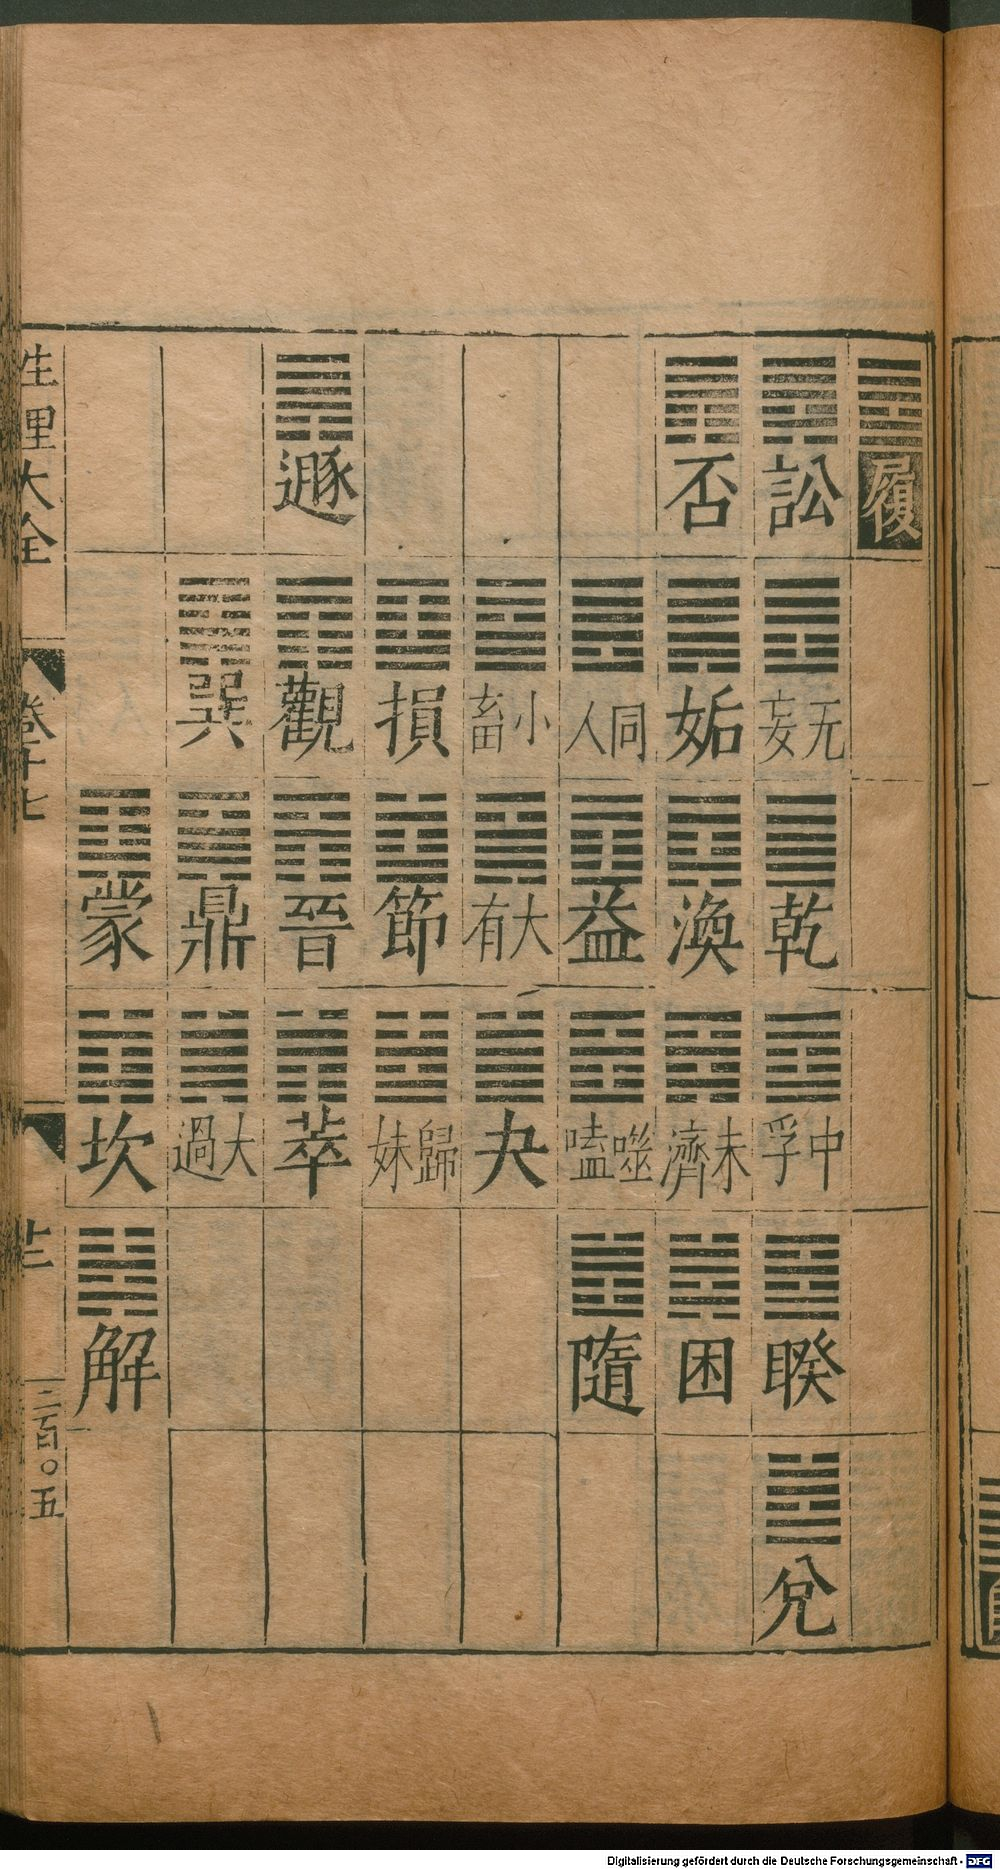 履
訟
否
遯
无妄
姤
同人
小畜
損
觀
巽
乾
渙
益
大有
節
晉
鼎
蒙
中孚
未濟
噬嗑
夬
歸妹
萃
大過
坎
睽
困
隨
解
兌
性理大全
卷十七
二百〇五
Digitalisierung gefördert durch die Deutsche Forschungsgemeinschaft - DFG